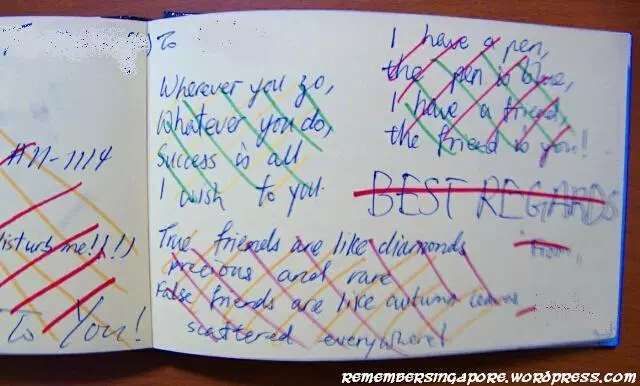 #11-1114
disturb me!!!)
To You!
To
Wherever you go,
Whatever you do,
Success is all
I wish to you.
I have a pen,
the pen is blue,
I have a friend,
the friend is you!
BEST REGARDS
from,
True friends are like diamonds
precious and rare
False friends are like autumn leaves
scattered everywhere!
REMEMBERSINGAPORE.WORDPRESS.COM